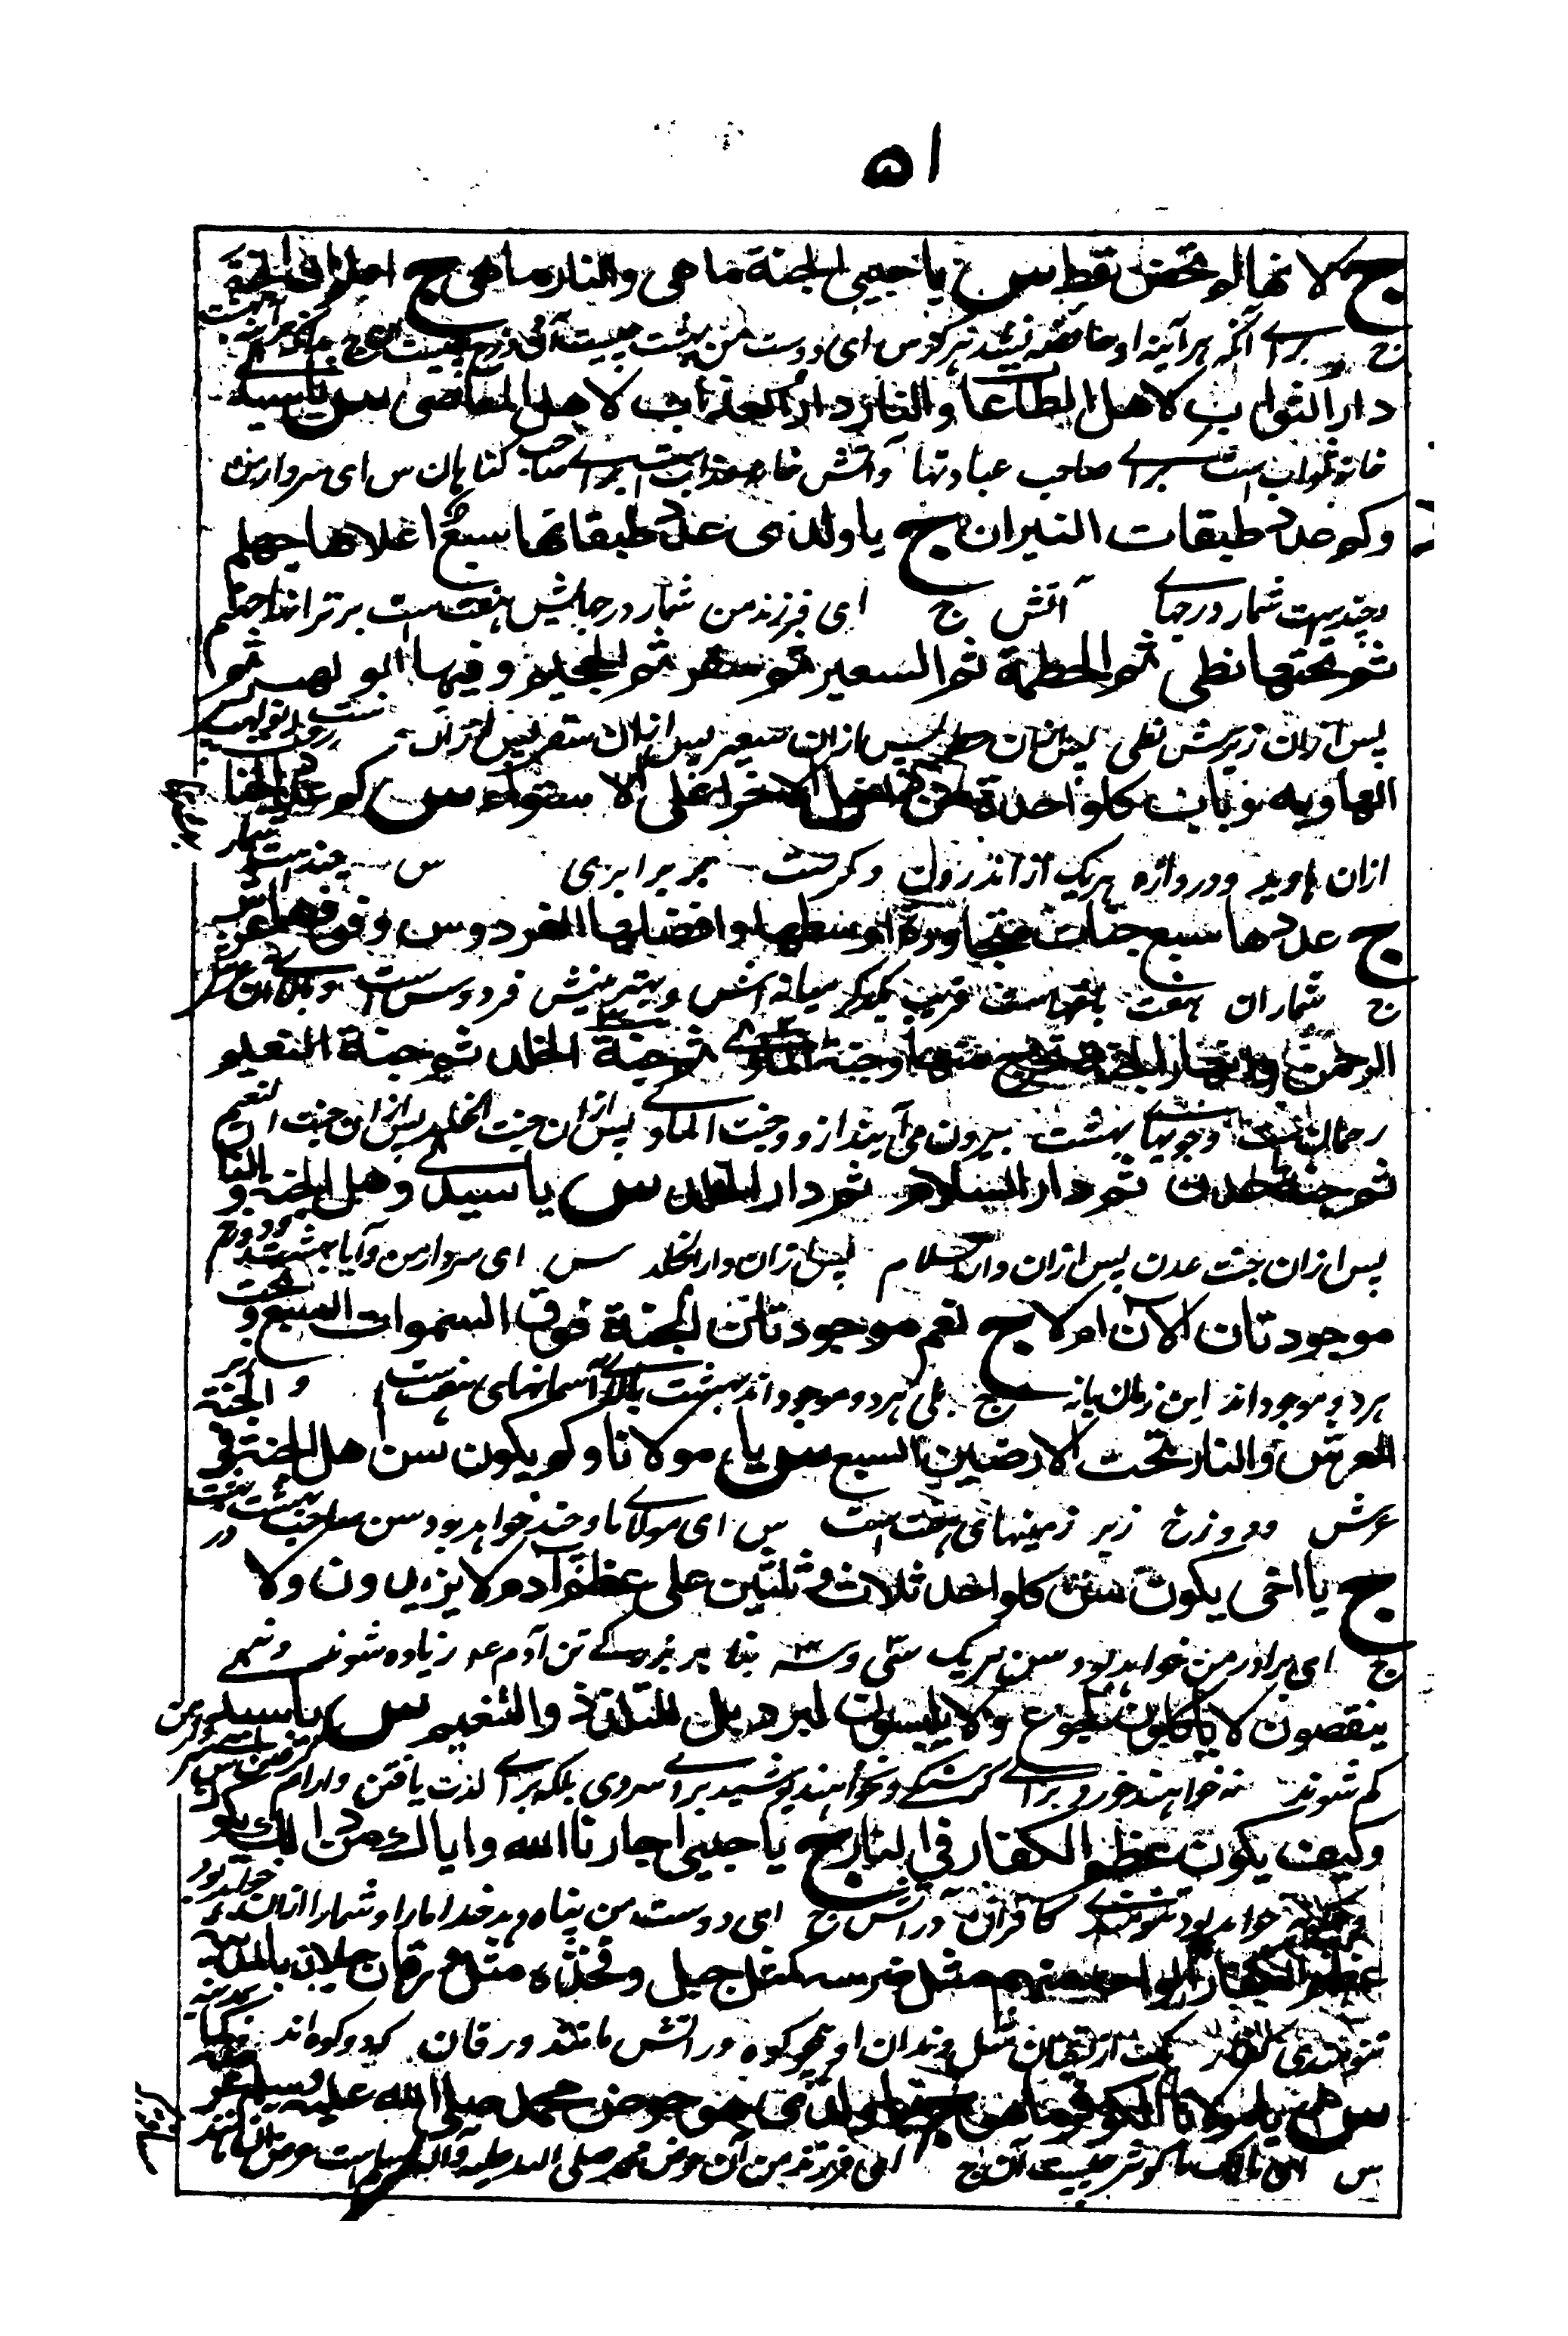 ٥١
ج لانها لم تحض قط س يا حبيبي الجنة ما هي والنار ما هي ج اما الجنة
ج برای آنکه هر آینه او حائضه نشد هرگز س ای دوست من بهشت چیست آن دوزخ چیست
دار الثواب لاهل الطاعا والنار دار العذاب لاهل المعاصی س يا سيدي
خانه ثواب است برای صاحب عبادتها و آتش خانه عذاب است برای صاحب کناهان س ای سردار من
وكم عدد طبقات النيران ج يا ولدي عدد طبقاتها سبع اعلاها جهنم
و چند هست شمار درجهای آتش ج ای فرزند من شمار درجهایش هفت است برتر انها جهنم
ثم تحتها لظى ثم الحطمة ثم السعير ثم سقر ثم الجحيم وفيها ابو لهب ثم
پس ازان زیرش لظی پس ازان حطمه پس ازان سعیر پس ازان سقر پس ازان
الهاويه وباب كل واحدة من داخل الاخرا على الاستواء س كم عدد الجنا
ازان هاویه و دروازه هر یک از اندرون دگرست بر برابری س چند هست شمار
ج عددها سبع جنات متجاورة اوسطها وافضلها الفردوس وفوقها عرش
ج شماران هفت بهشت است قریب یکدیگر میانه اش و بهترینش فردوس است و بالای آن عرش
الرحمن وانهار الجنة تخرج منها وجنة الماوى ثم جنة الخلد ثم جنة النعيم
رحمان است و جویهای بهشت بیرون می آیند ازو و جنت الماوی پس ازان جنت الخلد پس ازان جنت النعیم
ثم جنة عدن ثم دار السلام ثم دار الخلد س يا سيدي وهل الجنة والنار
پس ازان جنت عدن پس ازان دار السلام پس ازان دار الخلد س ای سردار من و آیا بهشت و دوزخ
موجودتان الآن ام لا ج نعم موجودتان الجنة فوق السموات السبع وتحت
هر دو موجود اند این زمان یا نه ج بلی هر دو موجود اند بهشت بالای آسمانهای هفت است و زیر
العرش والنار تحت الارضين السبع س يا مولانا وكم يكون سن اهل الجنة في الجنة
عرش و دوزخ زیر زمینهای هفت است س ای مولای ما و چند خواهد بود سن صاحب بهشت در بهشت
ج يا اخي يكون سن كل واحد ثلاث وثلثين على عظم آدم لا يزيدون ولا
ج ای برادر من خواهد بود سن هر یک سی و سه بنا بر بزرگی تن آدم عـ زیاده شوند و نمی
ينقصون لا ياكلون لجوع ولا يلبسون لبرد بل للتلذذ والتنعيم س يا سيدي
کم شوند نه خواهند خورد برای گرسنگی و نخواهند پوشید برای سردی بلکه برای لذت یافتن و ارام
وكيف يكون عظم الكفار في النار ج يا حبيبي اجارنا الله واياك من ذلك يكون
خواهد بود تنومندی کافران در آتش ج ای دوست من پناه دهد خدا مارا و شمارا ازان خواهد بود
عظم الكفار الواحد منهم مثل ضرسه كمثل جبل وفخذه مثل ورقان جبلان بالمدينة
تنومندی کفار یک ازیشان مثل دندان او همچو کوه و رانش مانند ورقان که دو کوه اند
س يا مولانا الكوثر ما هو ج يا ولدي هو حوض محمد صلى الله عليه وسلم
س ای مالک ما کوثر چیست آن ج ای فرزند من آن حوض محمد صلی الله علیه و آله وسلم است عرض آن مانند